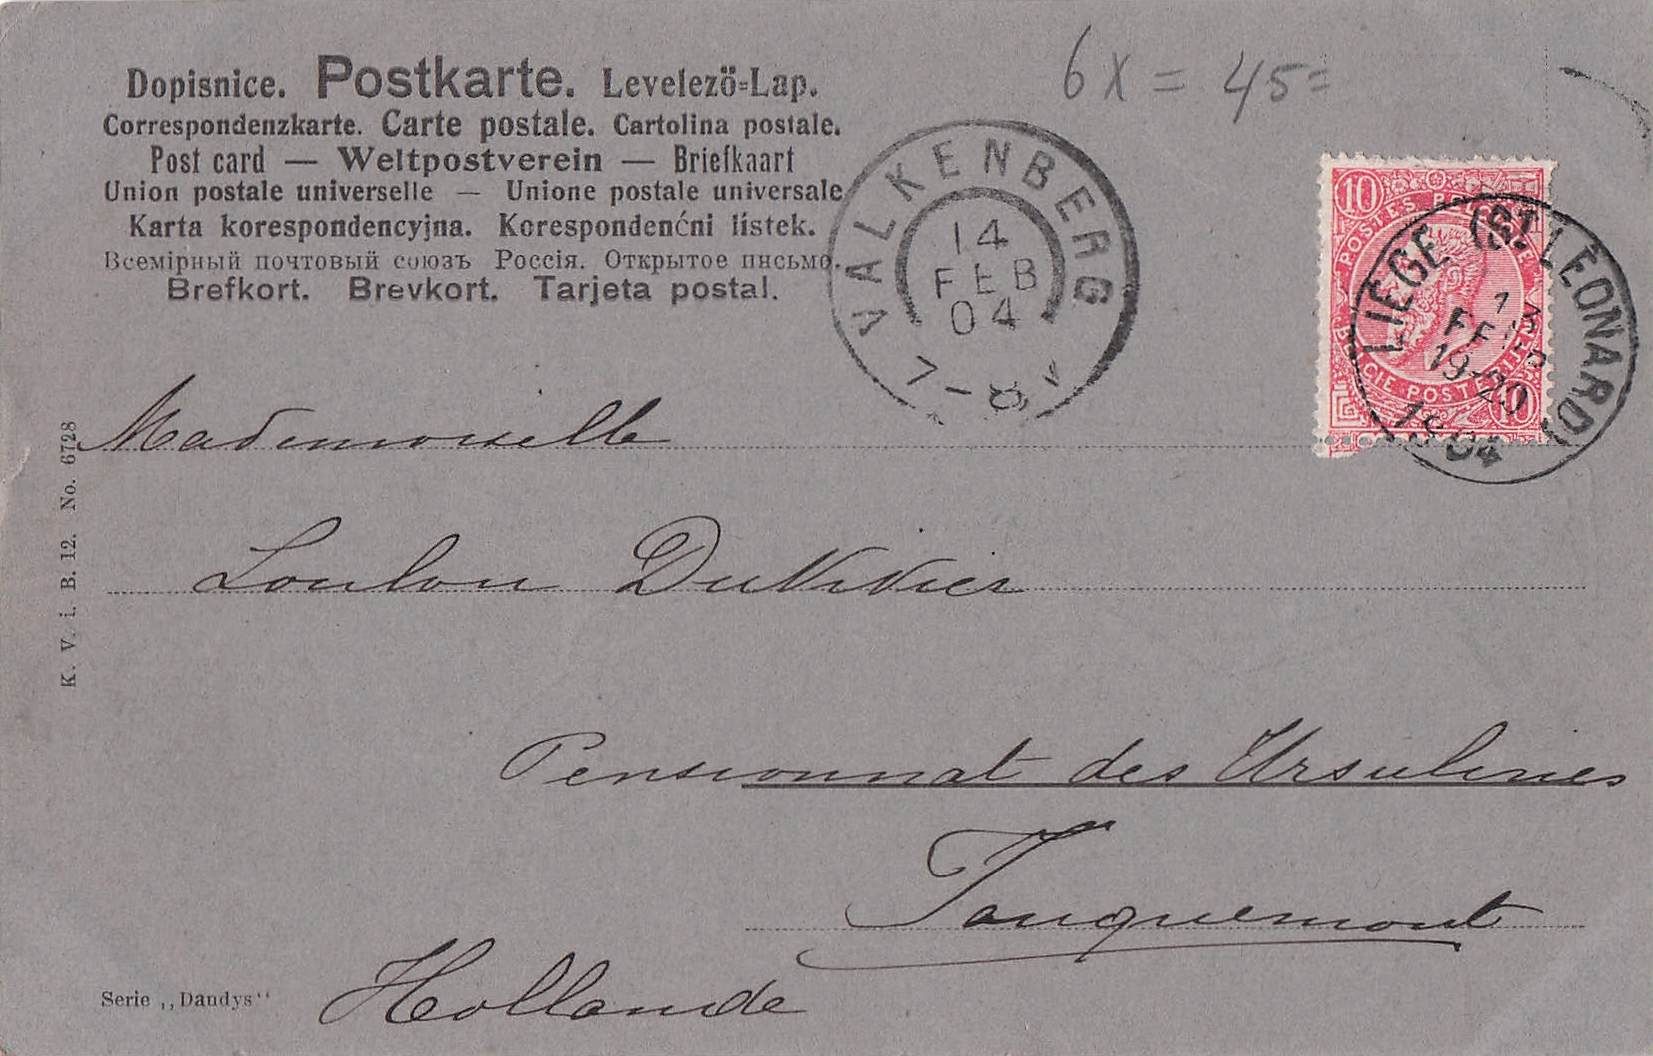 Dopisnice. Postkarte. Levelező=Lap.
Correspondenzkarte. Carte postale. Cartolina postale.
Post card — Weltpostverein — Briefkaart
Union postale universelle — Unione postale universale
Karta korespondencyjna. Korespondenćni lístek.
Всемірный почтовый союзъ Россія. Открытое письмо.
Brefkort. Brevkort. Tarjeta postal.
6 x = 45 =
VALKENBERG
14
FEB
04
7-8 V
10 10
POSTES BELGIQUE
BELGIE POSTERIJEN
10
LIEGE (ST LÉONARD)
13
FEVR
19-20
1904
Mademoiselle
Loulou DuVivier
Pensionnat des Ursulines
Fauquemont
Hollande
K. V. i. B. 12. No. 6728
Serie ,,Dandys"